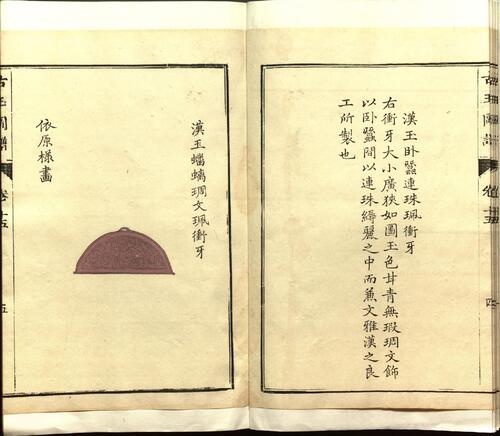 漢玉卧蠶連珠珮衝牙
右衝牙大小廣狹如圖玉色甘青無瑕琱文飾
以卧蠶間以連珠縟麗之中而兼文雅漢之良
工所製也
古玉圖譜
卷十五
四
漢玉蟠螭琱文珮衝牙
依原樣畫
古玉圖譜
卷十五
五